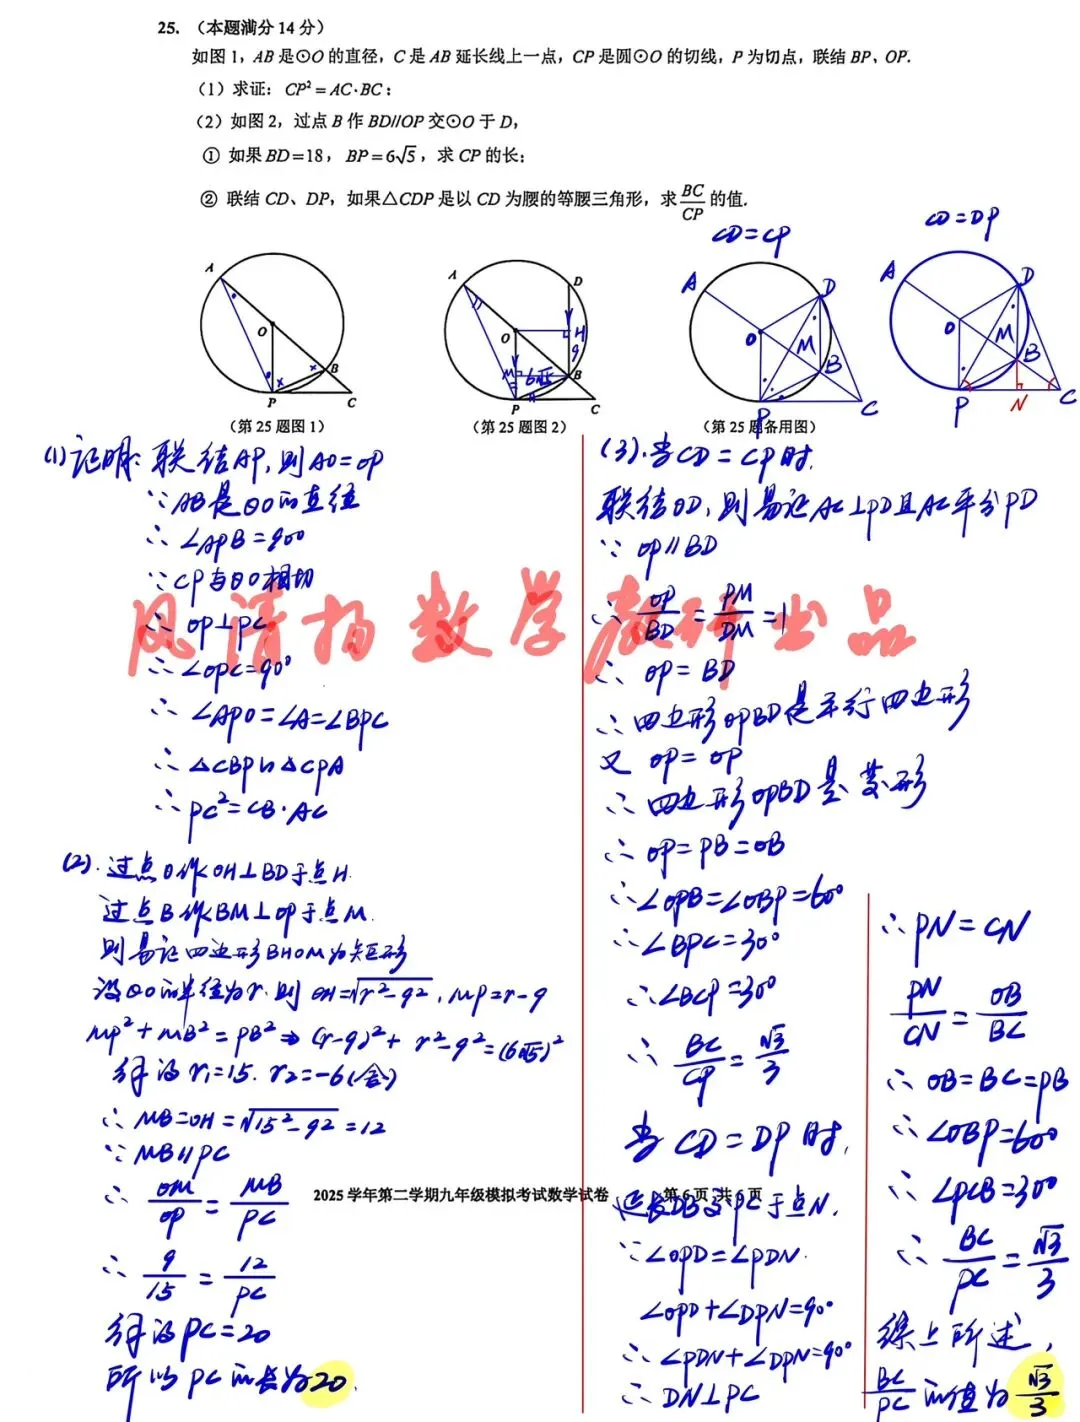 25. （本题满分 14 分）
如图 1，AB 是⊙O 的直径，C 是 AB 延长线上一点，CP 是圆⊙O 的切线，P 为切点，联结 BP、OP.
（1）求证：CP²＝AC·BC；
（2）如图 2，过点 B 作 BD//OP 交⊙O 于 D，
① 如果 BD＝18，BP＝6√5，求 CP 的长；
② 联结 CD、DP，如果△CDP 是以 CD 为腰的等腰三角形，求 BC/CP 的值.
CD=CP
CD=DP
A
O
B
P
C
（第 25 题图 1）
A
D
O
H
9
M
6√5
B
P
C
（第 25 题图 2）
A
D
O
M
B
P
C
（第 25 题备用图）
A
D
O
M
B
P
N
C
(1) 证明: 联结AP, 则AO=OP
∵AB是⊙O的直径
∴∠APB=90°
∵CP与⊙O相切
∴OP⊥PC
∴∠OPC=90°
∴∠APO=∠A=∠BPC
∴△CBP∽△CPA
∴PC²=CB·AC
(2). 过点O作OH⊥BD于点H.
过点B作BM⊥OP于点M.
则易证四边形BHOM为矩形
设⊙O的半径为r. 则 OH=√r²-9², MP=r-9
MP²+MB²=PB² ⇒ (r-9)²+r²-9²=(6√5)²
解得 r₁=15. r₂=-6(舍)
∴MB=OH=√15²-9²=12
∵MB∥PC
∴OM/OP=MB/PC
∴9/15=12/PC
解得PC=20
所以PC的长为20.
(3). 当CD=CP时,
联结OD, 则易证AC⊥PD且AC平分PD
∵OP∥BD
∴OP/BD=PM/DM=1
∴OP=BD
∴四边形OPBD是平行四边形
又 OP=OP
∴四边形OPBD是菱形
∴OP=PB=OB
∴∠OPB=∠OBP=60°
∴∠BPC=30°
∴∠BCP=30°
∴BC/CP=√3/3
当CD=DP时,
延长DB交PC于点N.
∵∠OPD=∠PDN.
∠OPD+∠DPN=90°
∴∠PDN+∠DPN=90°
∴DN⊥PC
∴PN=CN
PN/CN=OB/BC
∴OB=BC=PB
∴∠OBP=60°
∴∠PCB=30°
∴BC/PC=√3/3
综上所述,
BC/PC的值为√3/3
风清扬数学教研出品
2025 学年第二学期九年级模拟考试数学试卷 第 6 页 共 6 页